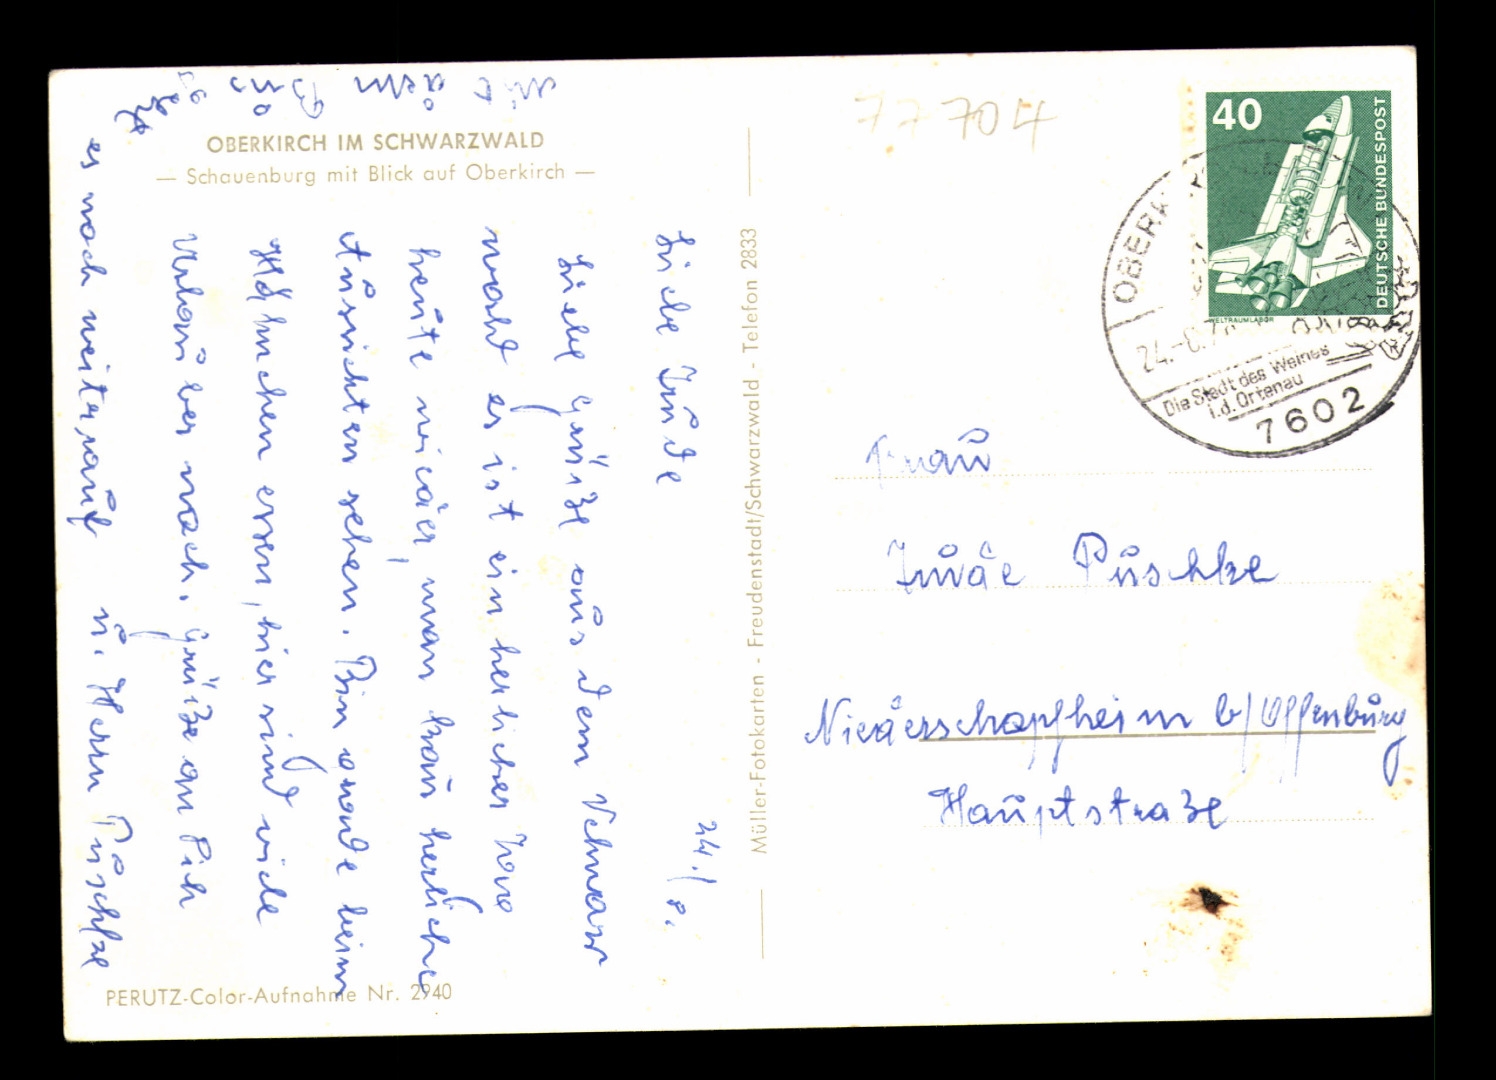 OBERKIRCH IM SCHWARZWALD
— Schauenburg mit Blick auf Oberkirch —
24./8.
Liebe Trude
Liebe Grüße aus dem Schwarz
wald es ist ein herlicher Tag
heute wieder, man kan herliche
Aussichten sehen. Bin grade beim
Hänchen essen, hier sind viele
Urlauber noch. Grüße an Dich
u. Herrn Püschke
es noch weiterauf
mit dem Bus
geht
PERUTZ-Color-Aufnahme Nr. 2940
Müller-Fotokarten - Freudenstadt/Schwarzwald - Telefon 2833
77704
40
DEUTSCHE BUNDESPOST
WELTRAUMLABOR
24.-8.7
Die Stadt des Weines
i.d. Ortenau
7602
Frau
Trude Püschke
Niederschopfheim b/Offenburg
Hauptstraße